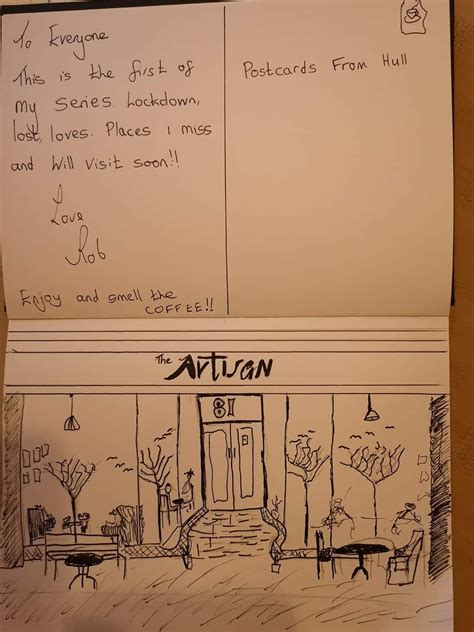 To Everyone
This is the first of
my series. Lockdown,
lost, loves. Places I miss
and Will visit soon!!
Love
Rob
Enjoy and smell the
COFFEE!!
Postcards From Hull
The Artisan
81